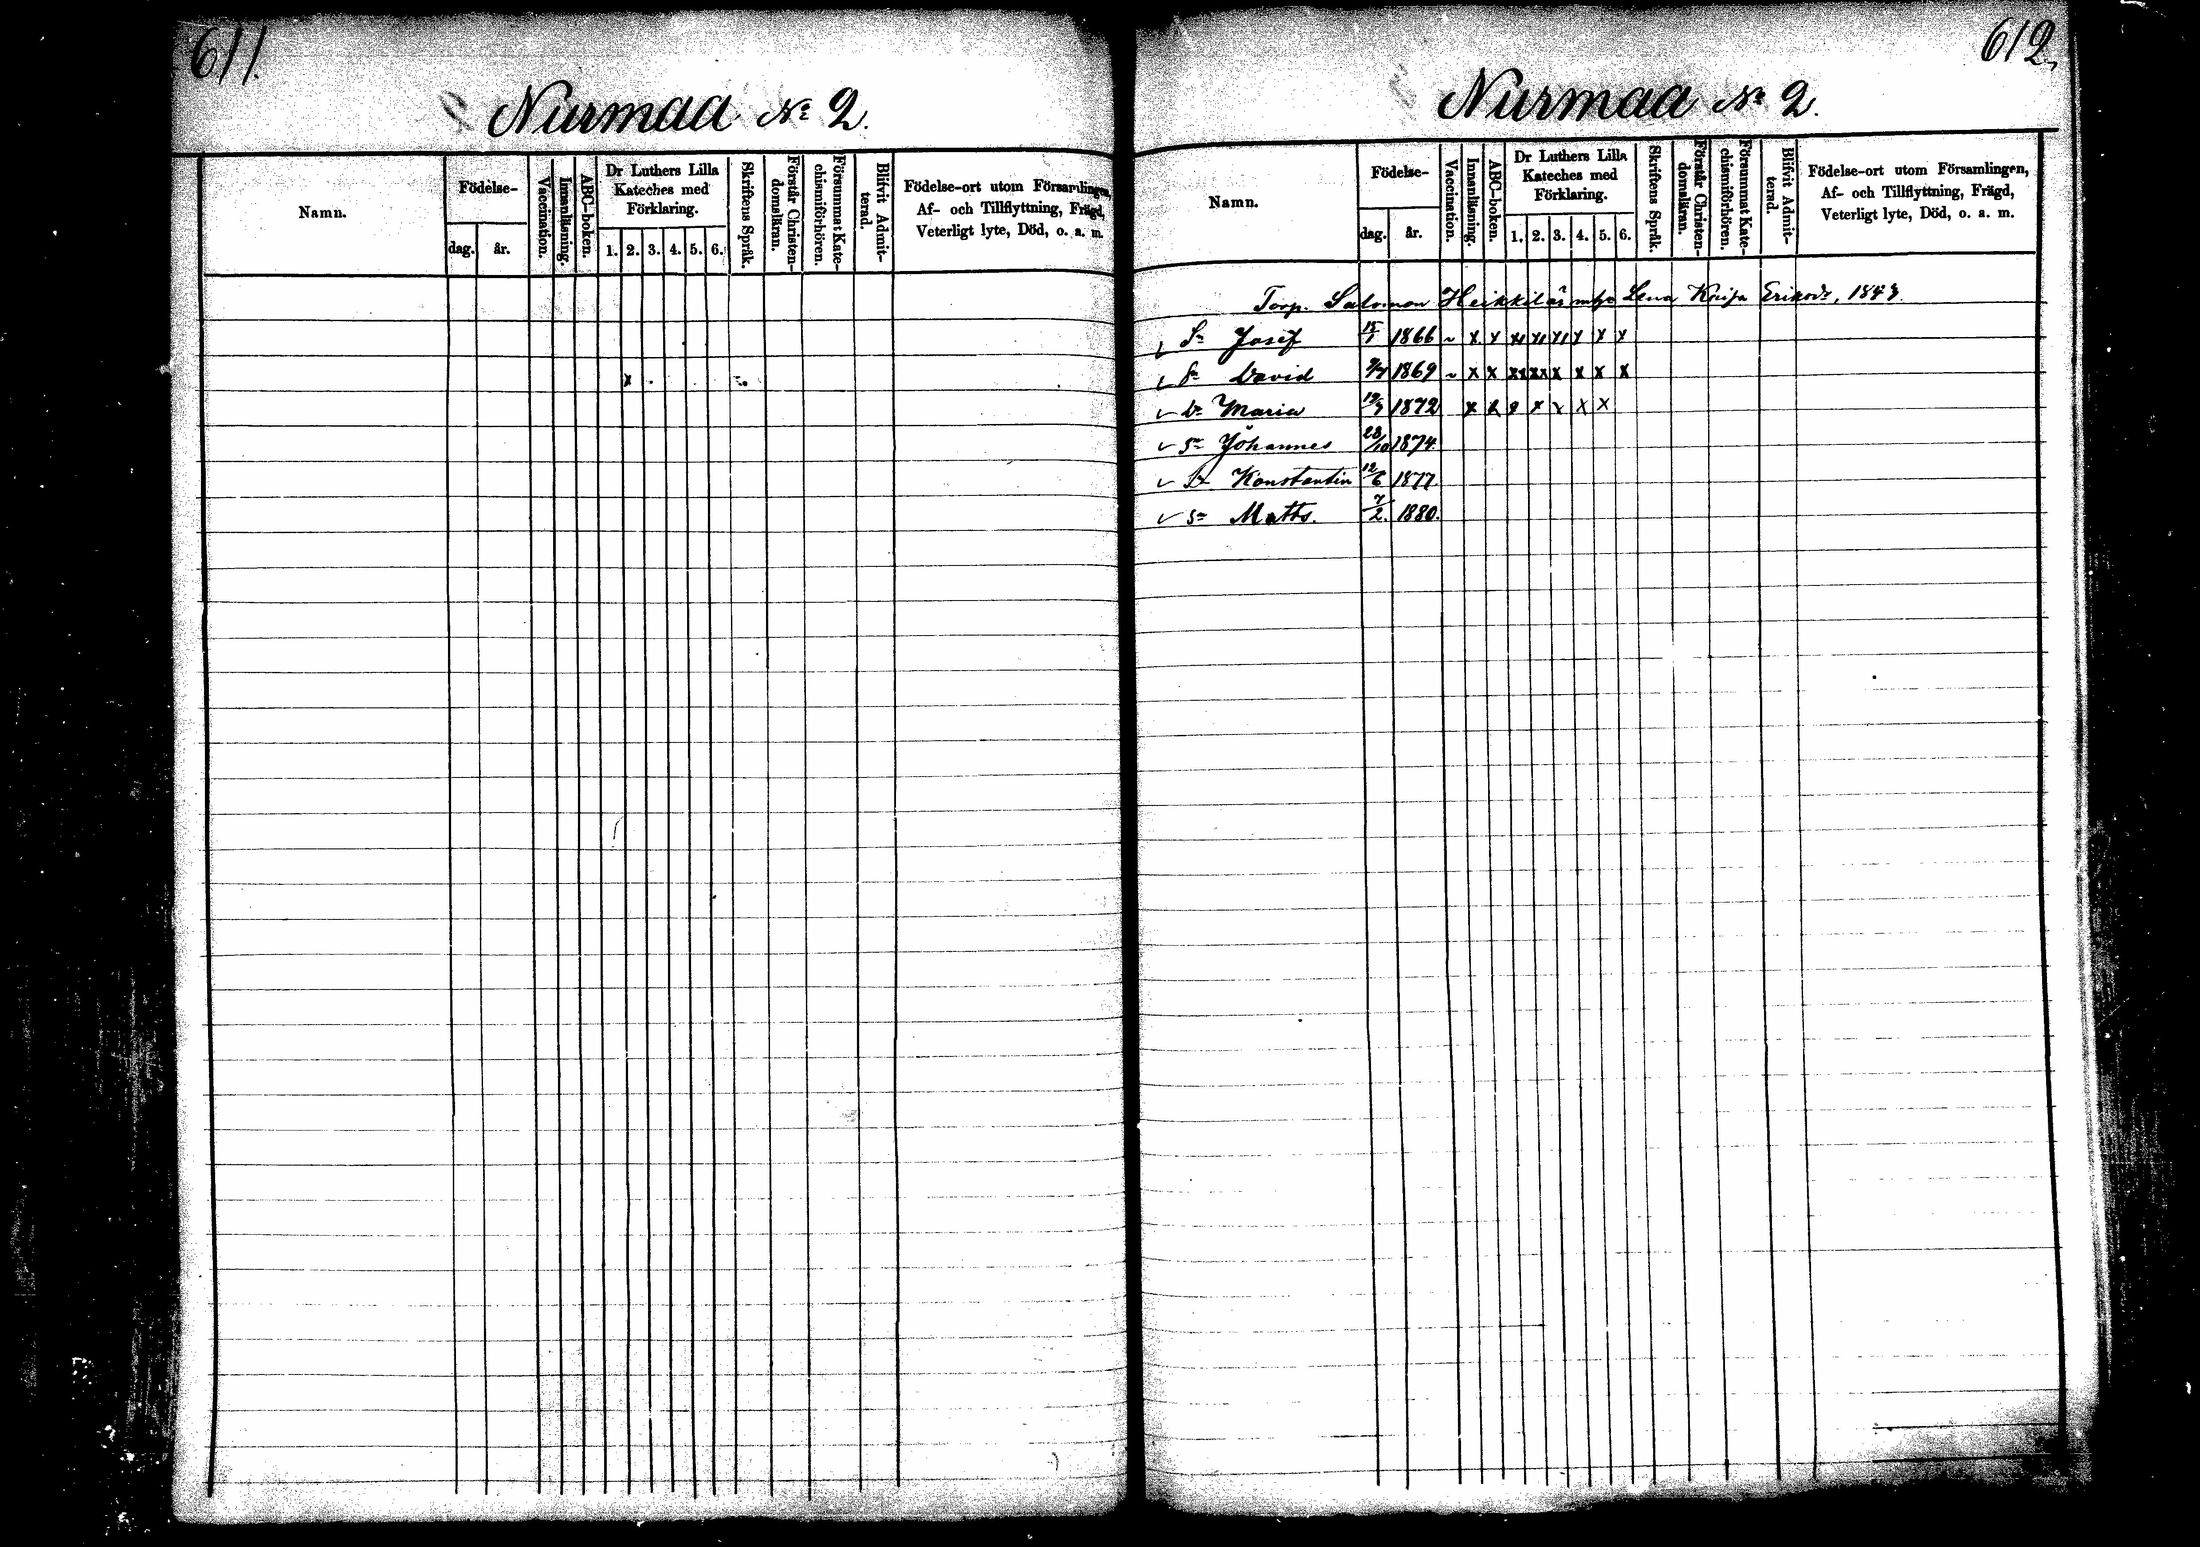 611.
Nurmaa № 2.
Namn.
Födelse-
dag. år.
Vaccination.
Innanläsning.
ABC-boken.
Dr Luthers Lilla
Kateches med
Förklaring.
1. 2. 3. 4. 5. 6.
Skriftens Språk.
Förstår Christen-
domsläran.
Försummat Kate-
chismiförhören.
Blifvit Admit-
terad.
Födelse-ort utom Församlingen,
Af- och Tillflyttning, Frägd,
Veterligt lyte, Död, o. a. m.
x
612.
Nurmaa № 2.
Namn.
Födelse-
dag. år.
Vaccination.
Innanläsning.
ABC-boken.
Dr Luthers Lilla
Kateches med
Förklaring.
1. 2. 3. 4. 5. 6.
Skriftens Språk.
Förstår Christen-
domsläran.
Försummat Kate-
chismiförhören.
Blifvit Admit-
terad.
Födelse-ort utom Församlingen,
Af- och Tillflyttning, Frägd,
Veterligt lyte, Död, o. a. m.
Torp. Salomon Heikkilä Lena Eriksdr, 184
Sn Josef 1866 x x x x x x x x
Sn David 1869 x x xx xx x x x x
Dr Maria 1872 x x x x x x
Sn Johannes 28/10 1874.
Sn Konstantin 12/6 1877.
Sn Matts. 7/2. 1880.